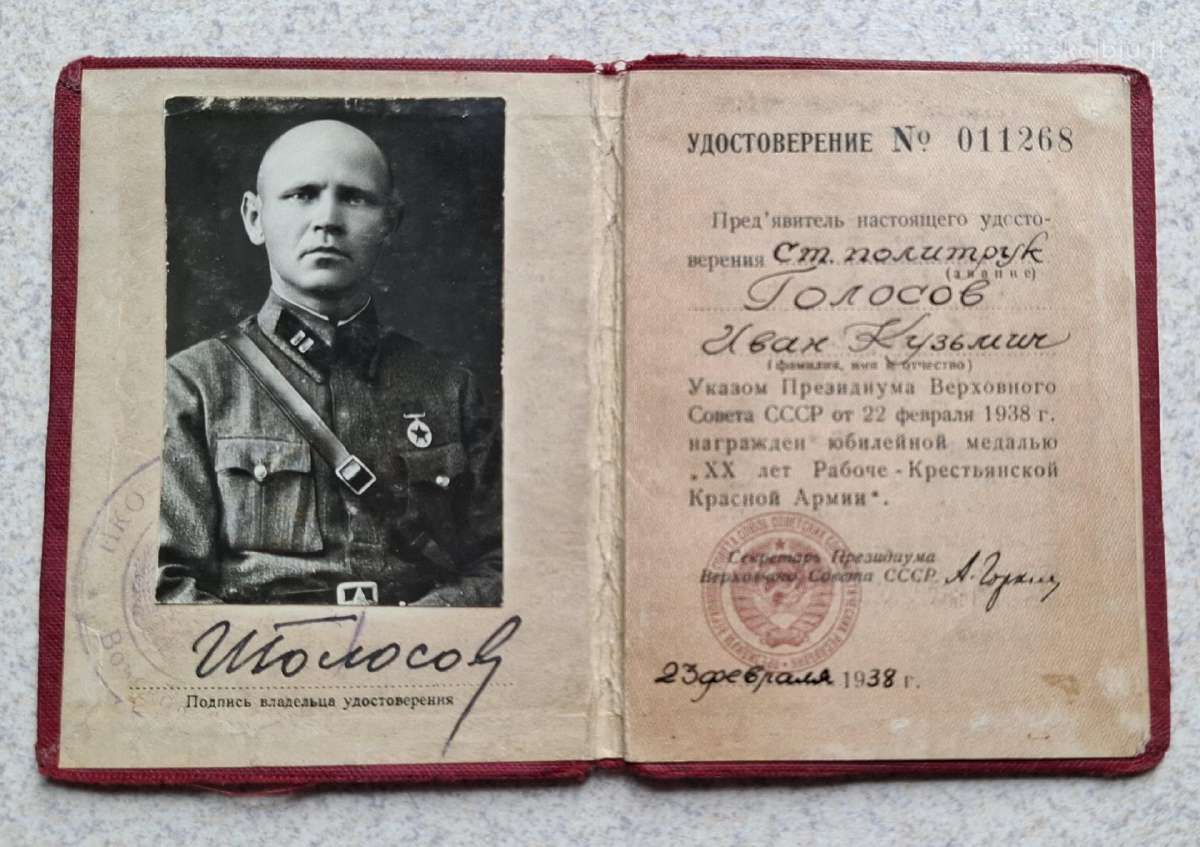 ИГолосов
Подпись владельца удостоверения
УДОСТОВЕРЕНИЕ № 011268
Пред'явитель настоящего удосто-
верения Ст. политрук
(звание)
Голосов
Иван Кузьмич
(фамилия, имя и отчество)
Указом Президиума Верховного
Совета СССР от 22 февраля 1938 г.
награжден юбилейной медалью
„XX лет Рабоче-Крестьянской
Красной Армии“.
Секретарь Президиума
Верховного Совета СССР. А. Горкин
23 февраля 1938 г.